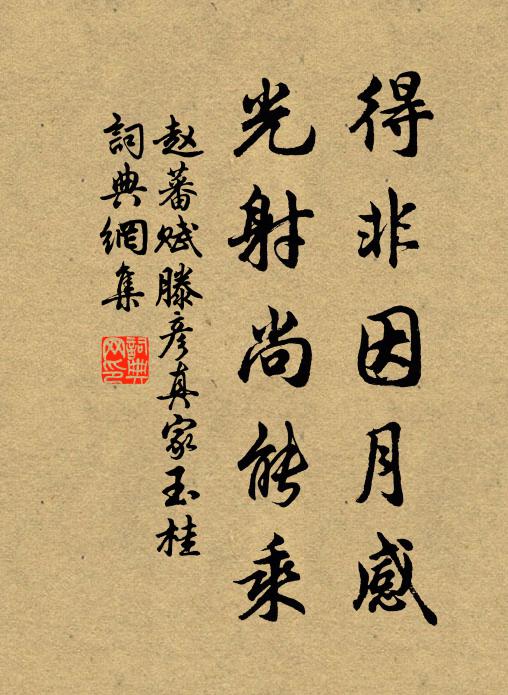 得非因月感
光射尚能乘
赵蕃赋滕彦真家玉桂
詞典網集
詞典网印